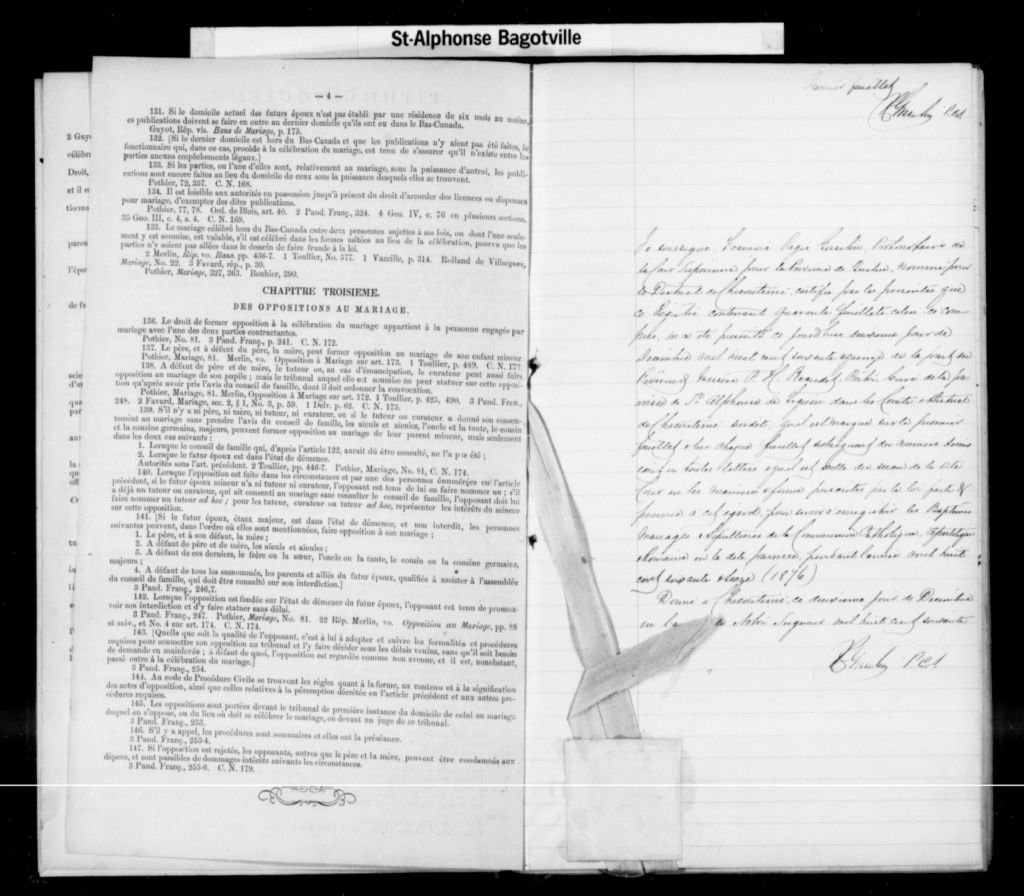 St-Alphonse Bagotville
— 4 —
131. Si le domicile actuel des futurs époux n'est pas établi par une résidence de six mois au moins,
es publications doivent se faire en outre au dernier domicile qu'ils ont eu dans le Bas-Canada.
Guyot, Rép. vis. Bans de Mariage, p. 175.
132. [Si le dernier domicile est hors du Bas-Canada et que les publications n'y aient pas été faites, le
fonctionnaire qui, dans ce cas, procède à la célébration du mariage, est tenu de s'assurer qu'il n'existe entre les
parties aucuns empêchements légaux.]
133. Si les parties, ou l'une d'elles, sont, relativement au mariage, sous la puissance d'autrui, les publi-
cations sont encore faites au lieu du domicile de ceux sous la puissance desquels elles se trouvent.
Pothier, 72, 357. C. N. 168.
134. Il est loisible aux autorités en possession jusqu'à présent du droit d'accorder des licences ou dispenses
pour mariage, d'exempter des dites publications.
Pothier, 77, 78. Ord. de Blois, art. 40. 2 Pand. Franç., 324. 4 Geo. IV, c. 76 en plusieurs sections.
35 Geo. III, c. 4, s. 4. C. N. 169.
135. Le mariage célébré hors du Bas-Canada entre deux personnes sujettes à ses lois, ou dont l'une seule-
ment y est soumise, est valable, s'il est célébré dans les formes usitées au lieu de la célébration, pourvu que les
parties n'y soient pas allées dans le dessein de faire fraude à la loi.
2 Merlin, Rép. vo. Bans. pp. 436-7. 1 Toullier, No. 577. 1 Vazeille, p. 314. Rolland de Villargues,
Mariage, No. 22. 3 Favard, rép., p. 30.
Pothier, Mariage, 327, 363. Bouhier, 390.
CHAPITRE TROISIEME.
DES OPPOSITIONS AU MARIAGE.
136. Le droit de former opposition à la célébration du mariage appartient à la personne engagée par
mariage avec l'une des deux parties contractantes.
Pothier, No. 81. 3 Pand. Franç., p. 241. C. N. 172.
137. Le père, et à défaut du père, la mère, peut former opposition au mariage de son enfant mineur
Pothier, Mariage, 81. Merlin, vo. Opposition à Mariage sur art. 173. 1 Toullier, p. 489. C. N. 173
138. A défaut de père et de mère, le tuteur ou, au cas d'émancipation, le curateur peut aussi faire
opposition au mariage de son pupille; mais le tribunal auquel elle est soumise ne peut statuer sur cette opposi-
tion qu'après avoir pris l'avis du conseil de famille, dont il doit ordonner la convocation.
Pothier, Mariage, 81. Merlin, Opposition à Mariage sur art. 172. 1 Toullier, p. 425, 490. 3 Pand. Fran.,
248. 2 Favard, Mariage, sec. 2, § 1, No. 3, p. 59. 1 Delv. p. 62. C. N. 175.
139. S'il n'y a ni père, ni mère, ni tuteur, ni curateur, ou si le tuteur ou curateur a donné son consen-
tement au mariage sans prendre l'avis du conseil de famille, les aïeuls et aïeules, l'oncle et la tante, le cousin
et la cousine germains, majeurs, peuvent former opposition au mariage de leur parent mineur, mais seulement
dans les deux cas suivants:
1. Lorsque le conseil de famille qui, d'après l'article 122, aurait dû être consulté, ne l'a pas été;
2. Lorsque le futur époux est dans l'état de démence.
Autorités sous l'art. précédent. 2 Toullier, pp. 446-7. Pothier, Mariage, No. 81, C. N. 174.
140. Lorsque l'opposition est faite dans les circonstances et par une des personnes énumérées en l'article
précédent, si le futur époux mineur n'a ni tuteur ni curateur, l'opposant est tenu de lui en faire nommer un; s'il
a déjà un tuteur ou curateur, qui ait consenti au mariage sans consulter le conseil de famille, l'opposant doit lui
faire nommer un tuteur ad hoc; pour les tuteur, curateur ou tuteur ad hoc, représenter les intérêts du mineur
sur cette opposition.
141. [Si le futur époux, étant majeur, est dans l'état de démence, et non interdit, les personnes
suivantes peuvent, dans l'ordre où elles sont mentionnées, faire opposition à son mariage;
1. Le père, et à son défaut, la mère;
2. A défaut de père et de mère, les aïeuls et aïeules;
3. A défaut de ces derniers, le frère ou la sœur, l'oncle ou la tante, le cousin ou la cousine germains,
majeurs;
4. A défaut de tous les susnommés, les parents et alliés du futur époux, qualifiés à assister à l'assemblée
du conseil de famille, qui doit être consulté sur son interdiction.]
3 Pand. Franç., 246,7.
142. Lorsque l'opposition est fondée sur l'état de démence du futur époux, l'opposant est tenu de promou-
voir son interdiction et d'y faire statuer sans délai.
3 Pand. Franç., 247. Pothier, Mariage, No. 81. 22 Rép. Merlin, vo. Opposition au Mariage, pp. 88
et suiv., et No. 4 sur art. 174. C. N. 174.
143. [Quelle que soit la qualité de l'opposant, c'est à lui à adopter et suivre les formalités et procédures
requises pour soumettre son opposition au tribunal et l'y faire décider sous les délais voulus, sans qu'il soit besoin
de demande en mainlevée; à défaut de quoi, l'opposition est regardée comme non avenue, et il est, nonobstant,
passé outre à la célébration du mariage.]
3 Pand. Franç., 254.
144. Au code de Procédure Civile se trouvent les règles quant à la forme, au contenu et à la signification
des actes d'opposition, ainsi que celles relatives à la péremption décrétée en l'article précédent et aux autres pro-
cédures requises.
145. Les oppositions sont portées devant le tribunal de première instance du domicile de celui au mariage
duquel on s'oppose, ou du lieu où doit se célébrer le mariage, ou devant un juge de ce tribunal.
3 Pand. Franç., 253.
146. S'il y a appel, les procédures sont sommaires et elles ont la préséance.
3 Pand. Franç., 253-4.
147. Si l'opposition est rejetée, les opposants, autres que le père et la mère, peuvent être condamnés aux
dépens, et sont passibles de dommages-intérêts suivants les circonstances.
3 Pand. Franç., 255-6. C. N. 179.
Premier feuillet
P.C.S.
Je soussigné, Protonotaire de
la Cour Supérieure pour la Province de Québec, nommé pour
le District de Chicoutimi, certifie par les présentes que
ce Régistre contenant Quarante feuillets, celui-ci com-
pris, m'a été présenté ce jourd'hui deuxième jour de
Décembre mil huit cent soixante et quinze de la part du
Révérend Messire Prêtre, Curé de la pa-
roisse de St. Alphonse de Liguori dans les Comté & District
de Chicoutimi susdits, quel est marqué sur le premier
feuillet & sur chaque feuillet subséquent du numéro
en toutes lettres & quel est scellé du sceau de la dite
Cour en la manière & forme prescrites par la loi faite &
pourvue à cet égard, pour servir à enregistrer les Baptêmes
Mariages & Sépultures de la Communion Catholique, Apostolique
& Romaine en la dite paroisse, pendant l'année mil huit
cent soixante & seize (1876)
Donné à Chicoutimi, ce deuxième jour de Décembre
en Notre Seigneur mil huit cent soixante
P.C.S.